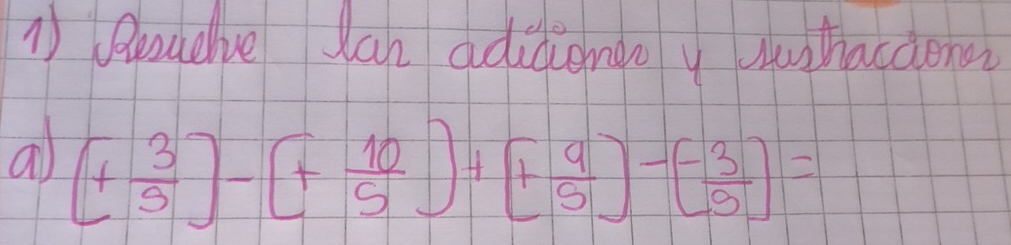 1) Resuelve las adiciones y sustracciones
a) [+ 3/5] - [+ 10/5] + [+ 9/5] - [- 3/5] =